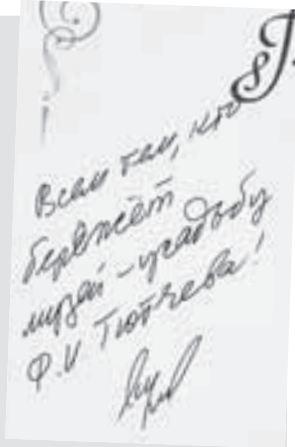 Всем тем, кто
бережёт
музей-усадьбу
Ф.И Тютчева!